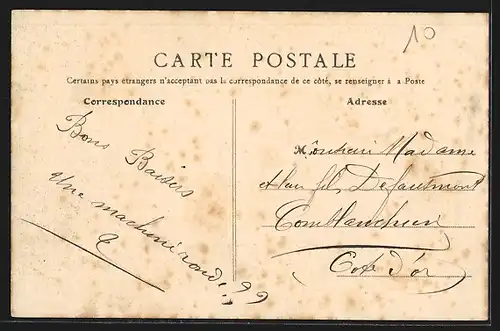 10
CARTE POSTALE
Certains pays étrangers n'acceptant pas la correspondance de ce côté, se renseigner à a Poste
Correspondance
Bons Baisers
Une
Adresse
Monsieur Madame
et leur fils Defautmont
Comblanchien
Cote d'or